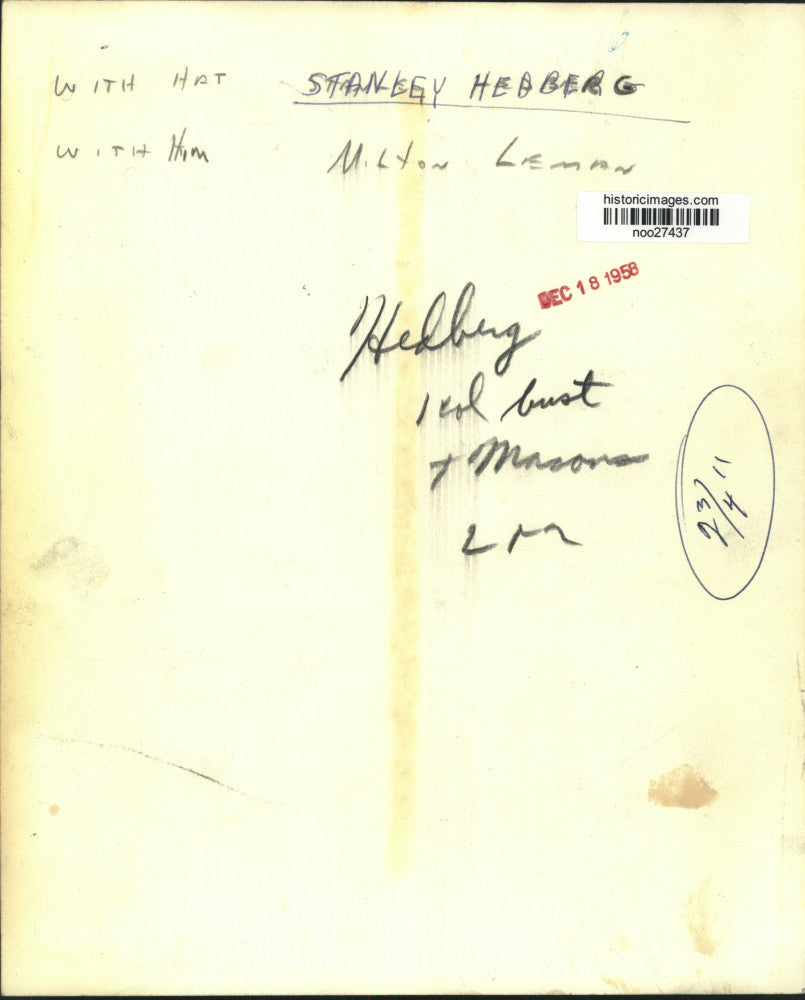 WITH HAT STANLEY HEDBERG
WITH HIM MILTON LEMAN
historicimages.com
noo27437
DEC 18 1958
Hedberg
1 col bust
+ Masons
23/4 11